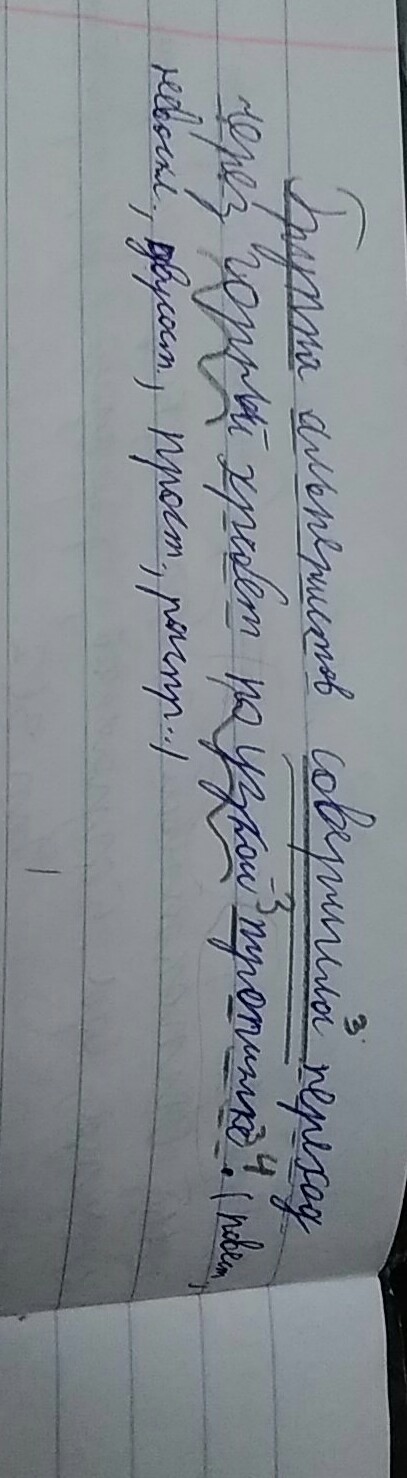 Группа альпенистов совершила³ переход
через горный хребет по узкой⁻³ тропинке³ ⁴. (повест,
невоскл., двусост., прост., распр..)